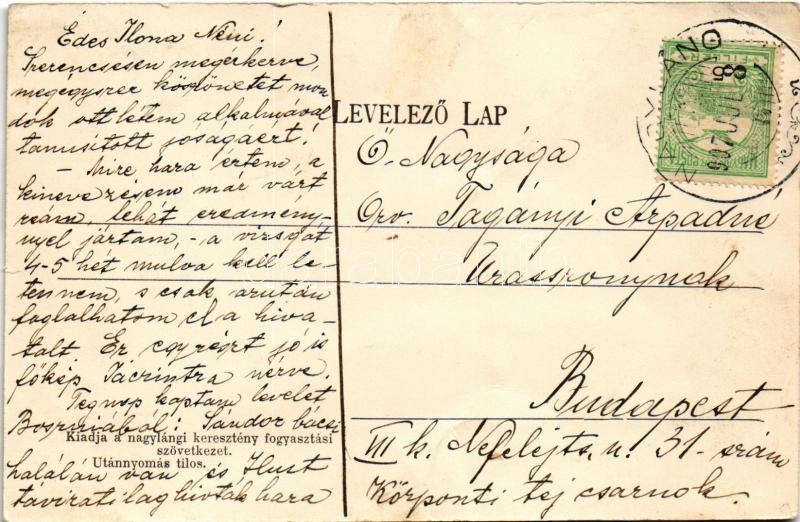 Édes Ilona Néni!
Szerencsésen megérkezve,
mégegyszer köszönetet mon
dok ott létem alkalmával
tanusított jóságáért!
– Mire haza értem, a
kinevezésem már várt
reám, tehát eredmény-
nyel jártam, - a vizsgát
4-5 hét mulva kell le-
tennem, s csak azután
foglalhatom el a hiva-
talt. Ez egyrészt jó is
főkép Jáczintra nézve.
Tegnap kaptam levelet
Boszniából: Sándor bácsi
Kiadja a nagylángi keresztény fogyasztási
szövetkezet.
Utánnyomás tilos.
halálán van és
táviratilag hivták haza
LEVELEZŐ LAP
Ő Nagysága
Orv. Tagányi Árpádné
Urasszonynak
Budapest
III k. Nefelejts u. 31-szám
Központi tej csarnok.
NAGYLÁNG
907 JUL